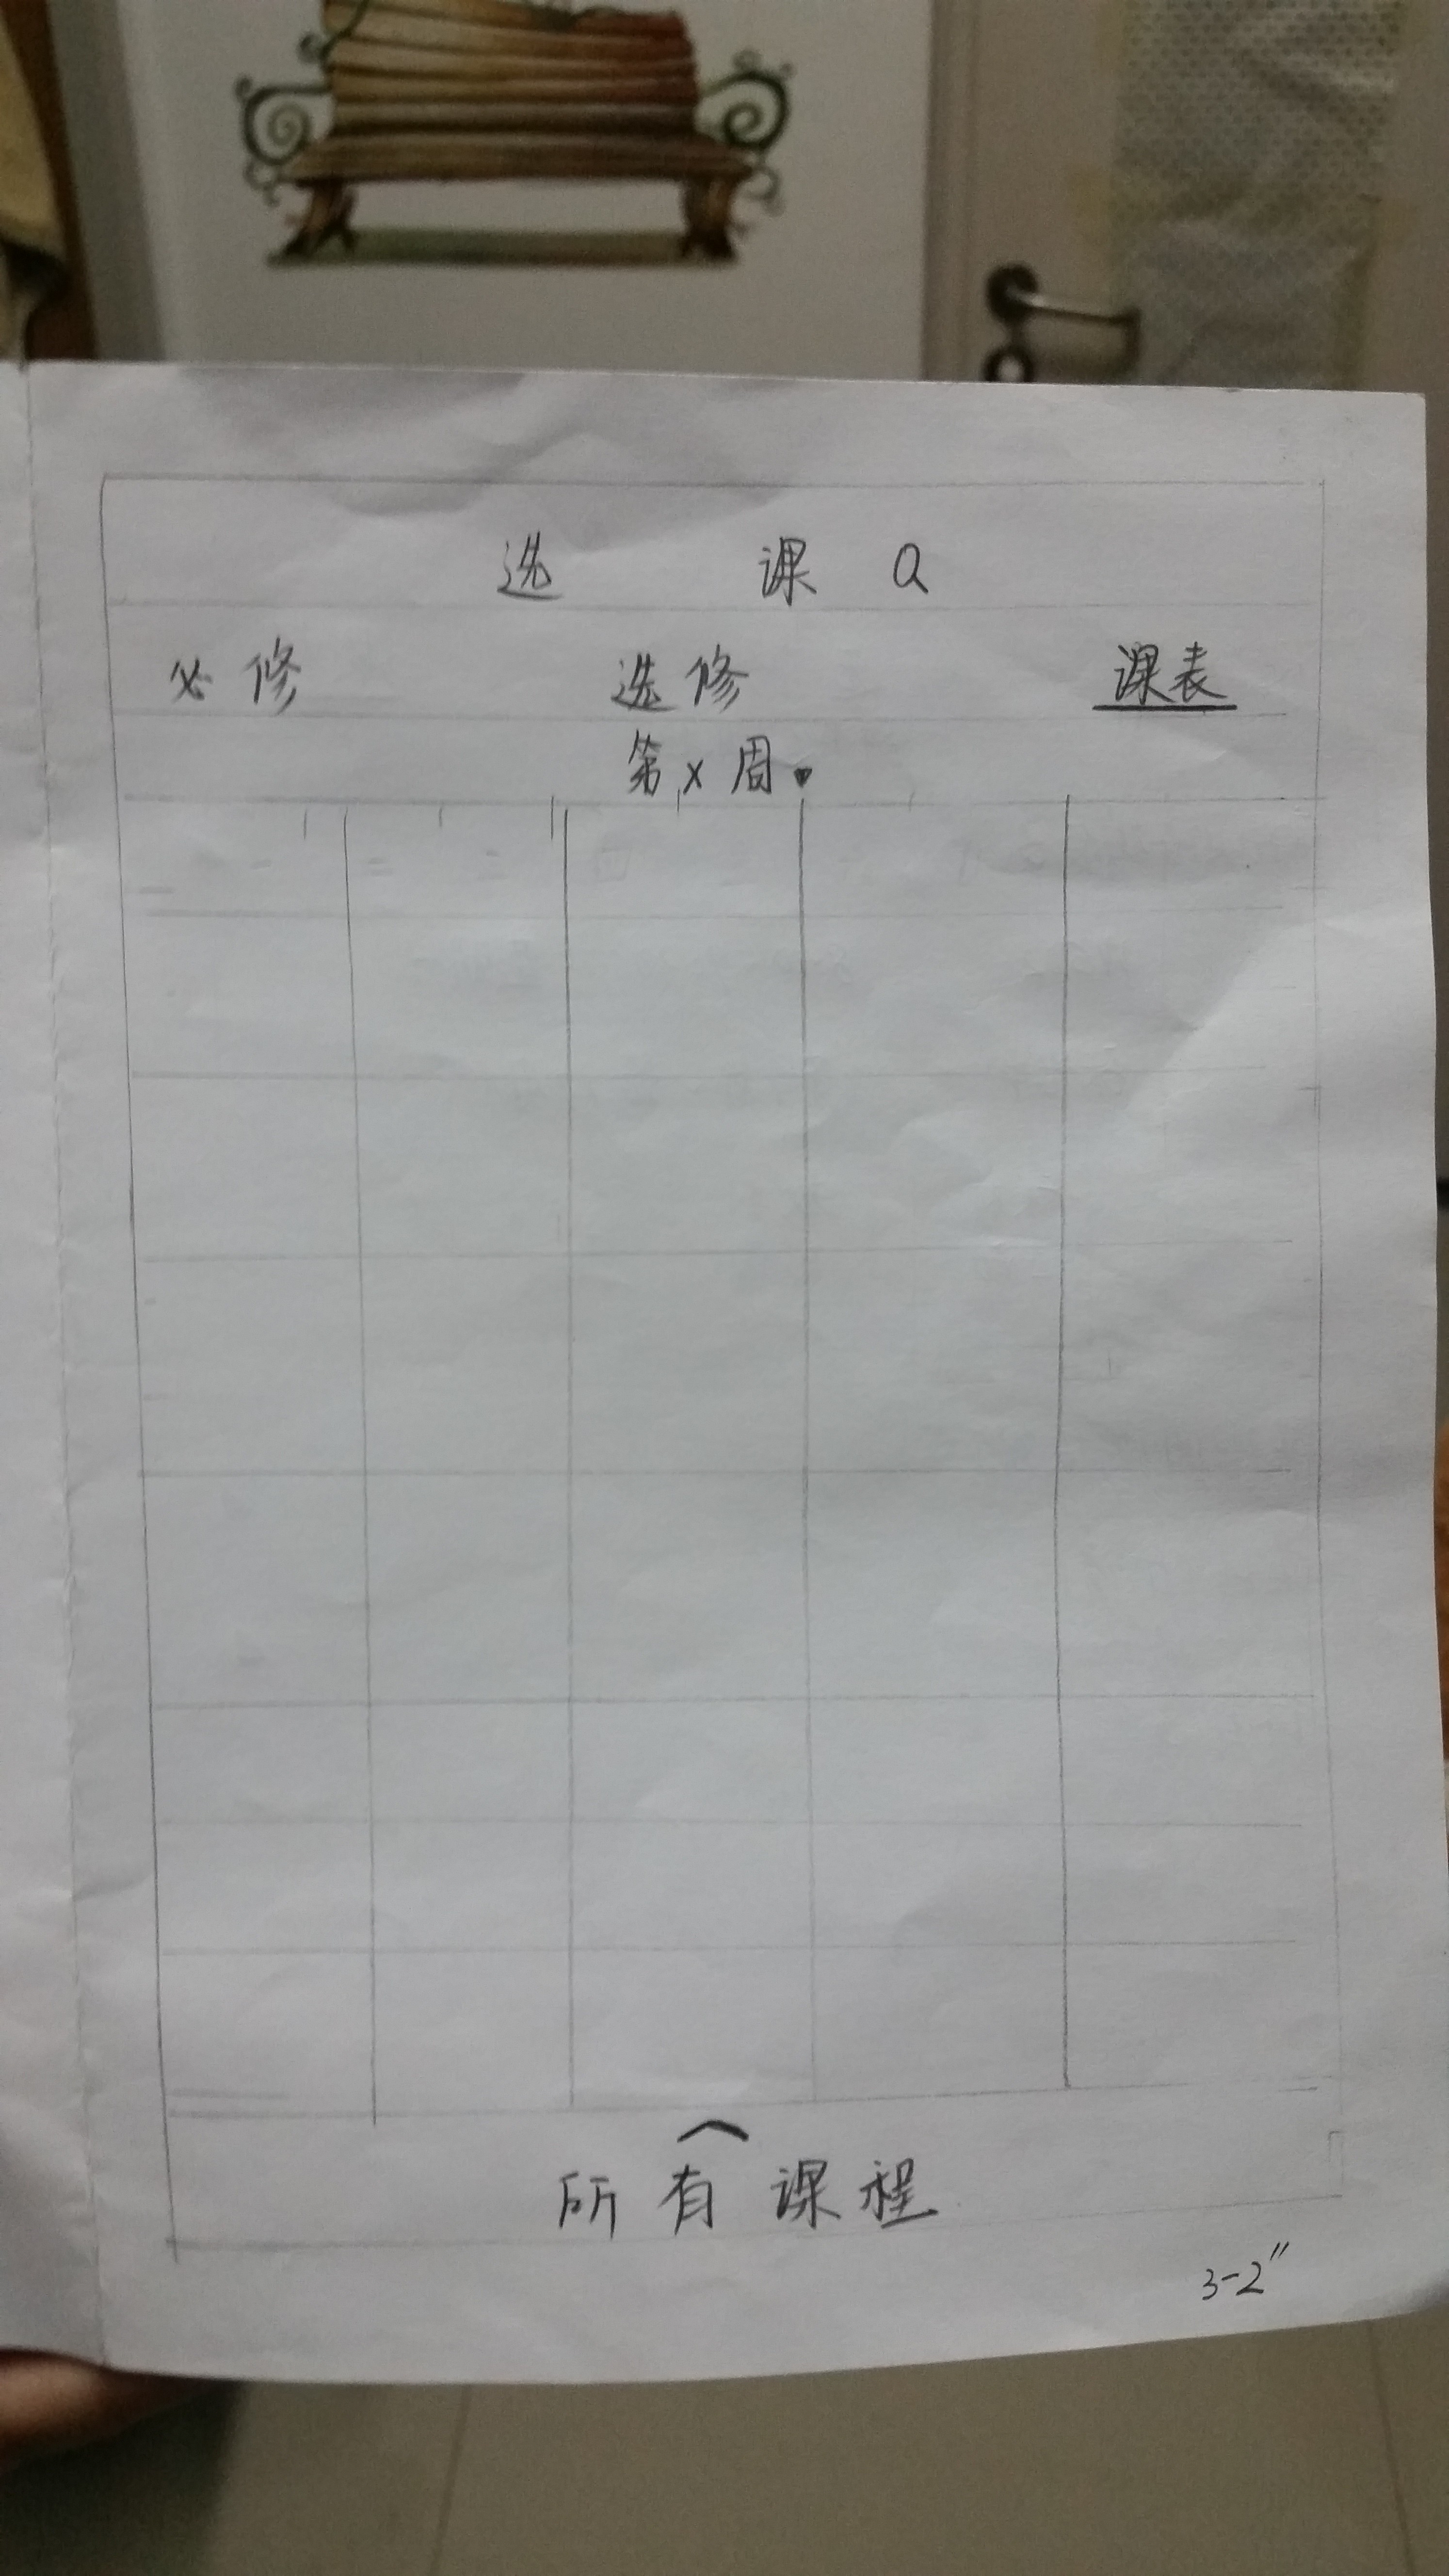 选 课 Q
必修 选修 课表
第x周
所有课程
3-2"